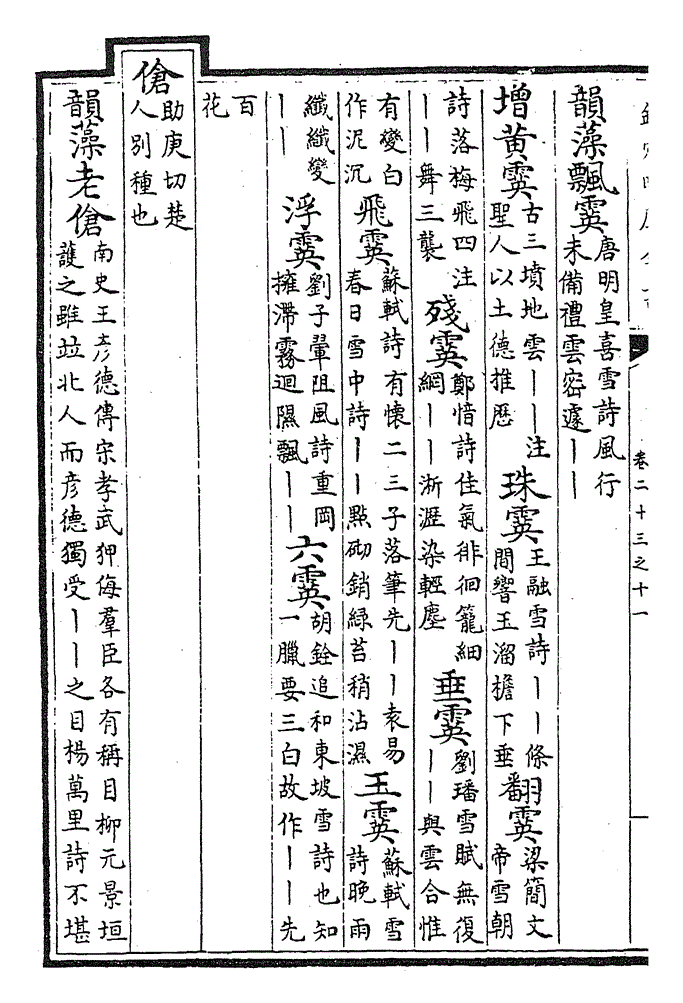 欽定四庫全書
卷二十三之十一
韻藻飄霙唐明皇喜雪詩風行未備禮雲密遽丨丨
增黃霙古三墳地雲丨丨注聖人以土德推歷珠霙王融雪詩丨丨條間響玉溜檐下垂翻霙梁簡文帝雪朝
詩落梅飛四注丨丨舞三襲殘霙鄭愔詩佳氣徘徊籠細網丨丨淅瀝染輕塵垂霙劉璠雪賦無復丨丨與雲合惟
有變白作泥沉飛霙蘇軾詩有懷二三子落筆先丨丨袁易春日雪中詩丨丨點砌銷綠苔稍沾濕王霙蘇軾雪詩晚雨
纖纖變丨丨浮霙劉子翬阻風詩重岡擁滯霧迴隰飄丨丨六霙胡銓追和東坡雪詩也知一臘要三白故作丨丨先
百花
傖助庚切楚人別種也
韻藻老傖南史王彥德傳宋孝武狎侮羣臣各有稱目柳元景垣護之雖竝北人而彥德獨受丨丨之目楊萬里詩不堪